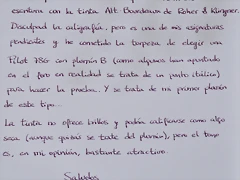 escritura con la tinta Alt-Bourdeaux de Rohrer & Klingner.
Disculpad la caligrafía, pero es una de mis asignaturas
pendientes y he cometido la torpeza de elegir una
Pilot 78G con plumín B (como algunos han apuntado
en el foro en realidad se trata de un punto itálico)
para hacer la prueba. Y se trata de mi primer plumín
de este tipo...
La tinta no ofrece brillos y podría calificarse como algo
seca (aunque quizás se trate del plumín), pero el tono
es, en mi opinión, bastante atractivo.
Saludos